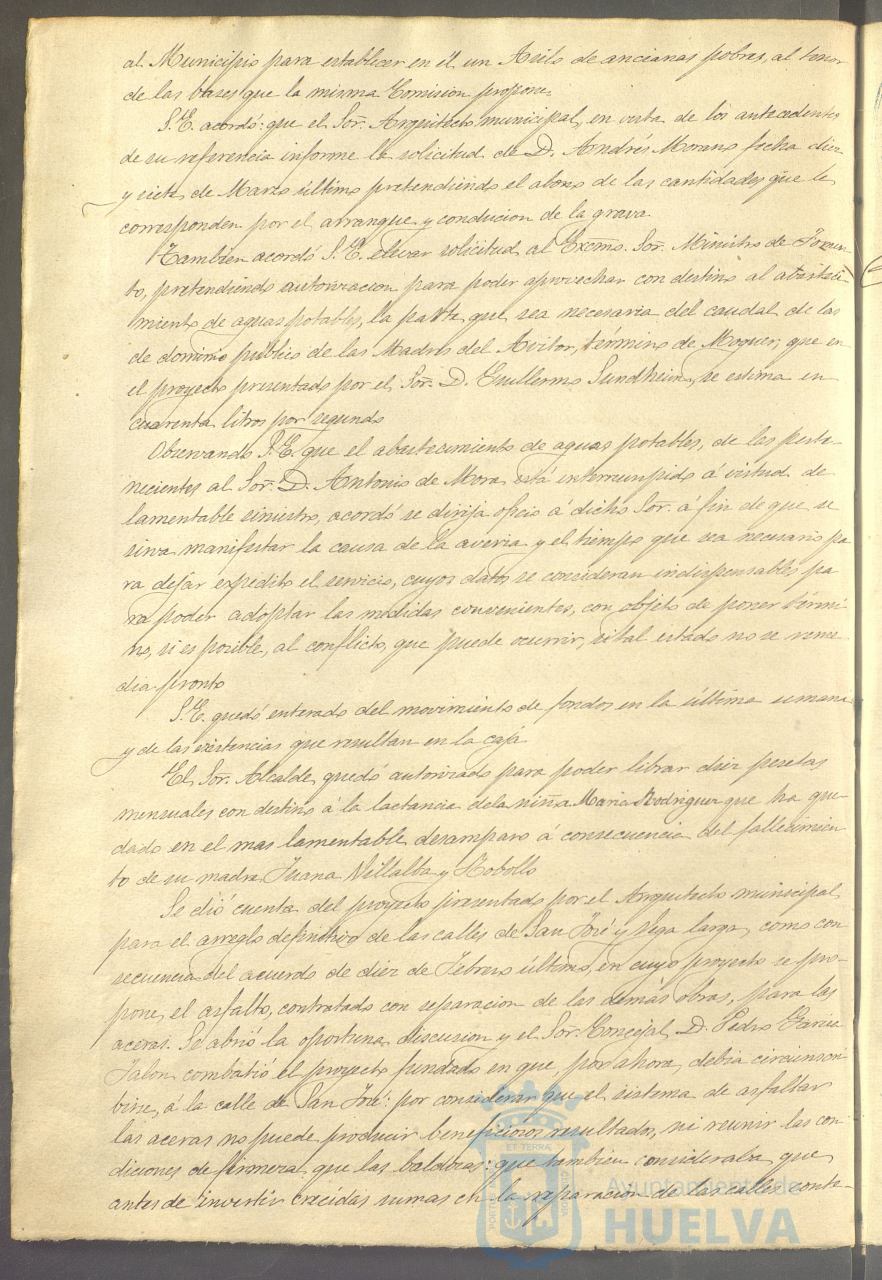 al Municipio para establecer en él un Asilo de ancianas pobres, al tenor
de las bases que la misma Comisión propone.
S.E. acordó: que el Sor. Arquitecto municipal, en vista de los antecedentes
de su referencia informe la solicitud de D. Andrés Morano fecha diez
y siete de Marzo último pretendiendo el abono de las cantidades que le
corresponden por el arranque y conducion de la grava.
Tambien acordó S.E. elevar solicitud al Excmo. Sor. Ministro de Fomen-
to, pretendiendo autorizacion para poder aprovechar con destino al abasteci-
miento de aguas potables, la parte que sea necesaria del caudal de las
de dominio público de las Madres del Avitor, término de Moguer, que en
el proyecto presentado por el Sor. D. Guillermo Sundheim, se estima en
cuarenta litros por segundo
Observando S.E. que el abastecimiento de aguas potables, de las perte-
necientes al Sor. D. Antonio de Mora, está interrumpido á virtud de
lamentable siniestro, acordó se dirija oficio á dicho Sor. á fin de que se
sirva manifestar la causa de la averia y el tiempo que sea necesario pa
ra dejar expedito el servicio, cuyos datos se consideran indispensables pa
ra poder adoptar las medidas convenientes, con objeto de poner térmi
no, si es posible, al conflicto, que puede ocurrir, si tal estado no se reme
dia pronto
S.E. quedó enterado del movimiento de fondos en la última semana
y de las existencias que resultan en la caja.
El Sor. Alcalde quedó autorizado para poder librar diez pesetas
mensuales con destino á la lactancia de la niña Maria Rodriguez que ha que-
dado en el mas lamentable desamparo á consecuencia del fallecimien
to de su madre Juana Villalba y Rebollo
Se dió cuenta del proyecto presentado por el Arquitecto municipal
para el arreglo definitivo de las calles de San José y Vega larga, como con
secuencia del acuerdo de diez de Febrero último, en cuyo proyecto se pro-
pone, el asfalto, contratado con separacion de las demás obras, para las
aceras. Se abrió la oportuna discusion y el Sor. Concejal D. Pedro Garcia
Jalon combatió el proyecto fundado en que, por ahora, debia circunscri
birse, á la calle de San José: por considerar que el sistema de asfaltar
las aceras no puede producir beneficiosos resultados, ni reunir las con
diciones de firmeza que las baldosas: que tambien consideraba que
antes de invertir crecidas sumas en la reparacion de las calles conta-
ET TERRA
Ayuntamiento de
HUELVA